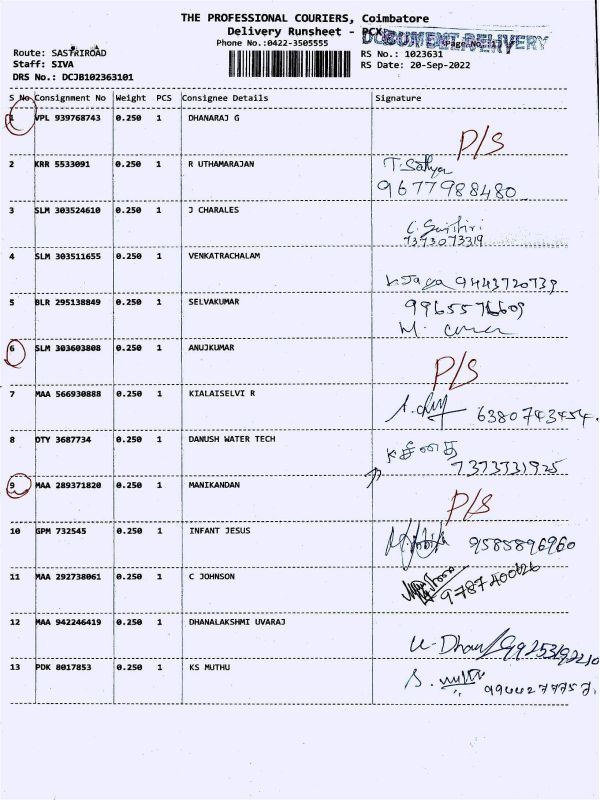 THE PROFESSIONAL COURIERS, Coimbatore
Delivery Runsheet - PCX
DOCUMENT DELIVERY
Phone No.:0422-3505555
Page No.:1
Route: SASTRIROAD
RS No.: 1023631
Staff: SIVA
RS Date: 20-Sep-2022
DRS No.: DCJB102363101
S No Consignment No Weight PCS Consignee Details Signature
1 VPL 939768743 0.250 1 DHANARAJ G
P/S
2 KRR 5533091 0.250 1 R UTHAMARAJAN T. Sathya
9677988480
3 SLM 303524610 0.250 1 J CHARALES
7373073319
4 SLM 303511655 0.250 1 VENKATRACHALAM
9443720739
5 BLR 295138849 0.250 1 SELVAKUMAR 9965576609
6 SLM 303603808 0.250 1 ANUJKUMAR
P/S
7 MAA 566930888 0.250 1 KIALAISELVI R
6380743454.
8 OTY 3687734 0.250 1 DANUSH WATER TECH
7373331925
9 MAA 289371820 0.250 1 MANIKANDAN
P/S
10 GPM 732545 0.250 1 INFANT JESUS
9585896960
11 MAA 292738061 0.250 1 C JOHNSON
12 MAA 942246419 0.250 1 DHANALAKSHMI UVARAJ
13 PDK 8017853 0.250 1 KS MUTHU